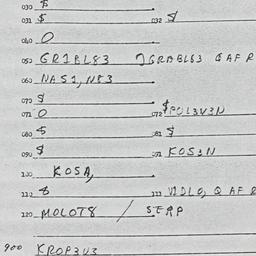 030 $
031 $ 032 $
040 0
050 GR1BL83 7GRABL83 QAFR
060 NAS1, N83
070 $
071 0 072 $POL3V3N
080 $ 081 $
090 $ 091 KOS3N
100 KOSA,
110 8 111 V1DL0, QAFR
120 MOLOT8 / SERP
900 KROP3V3